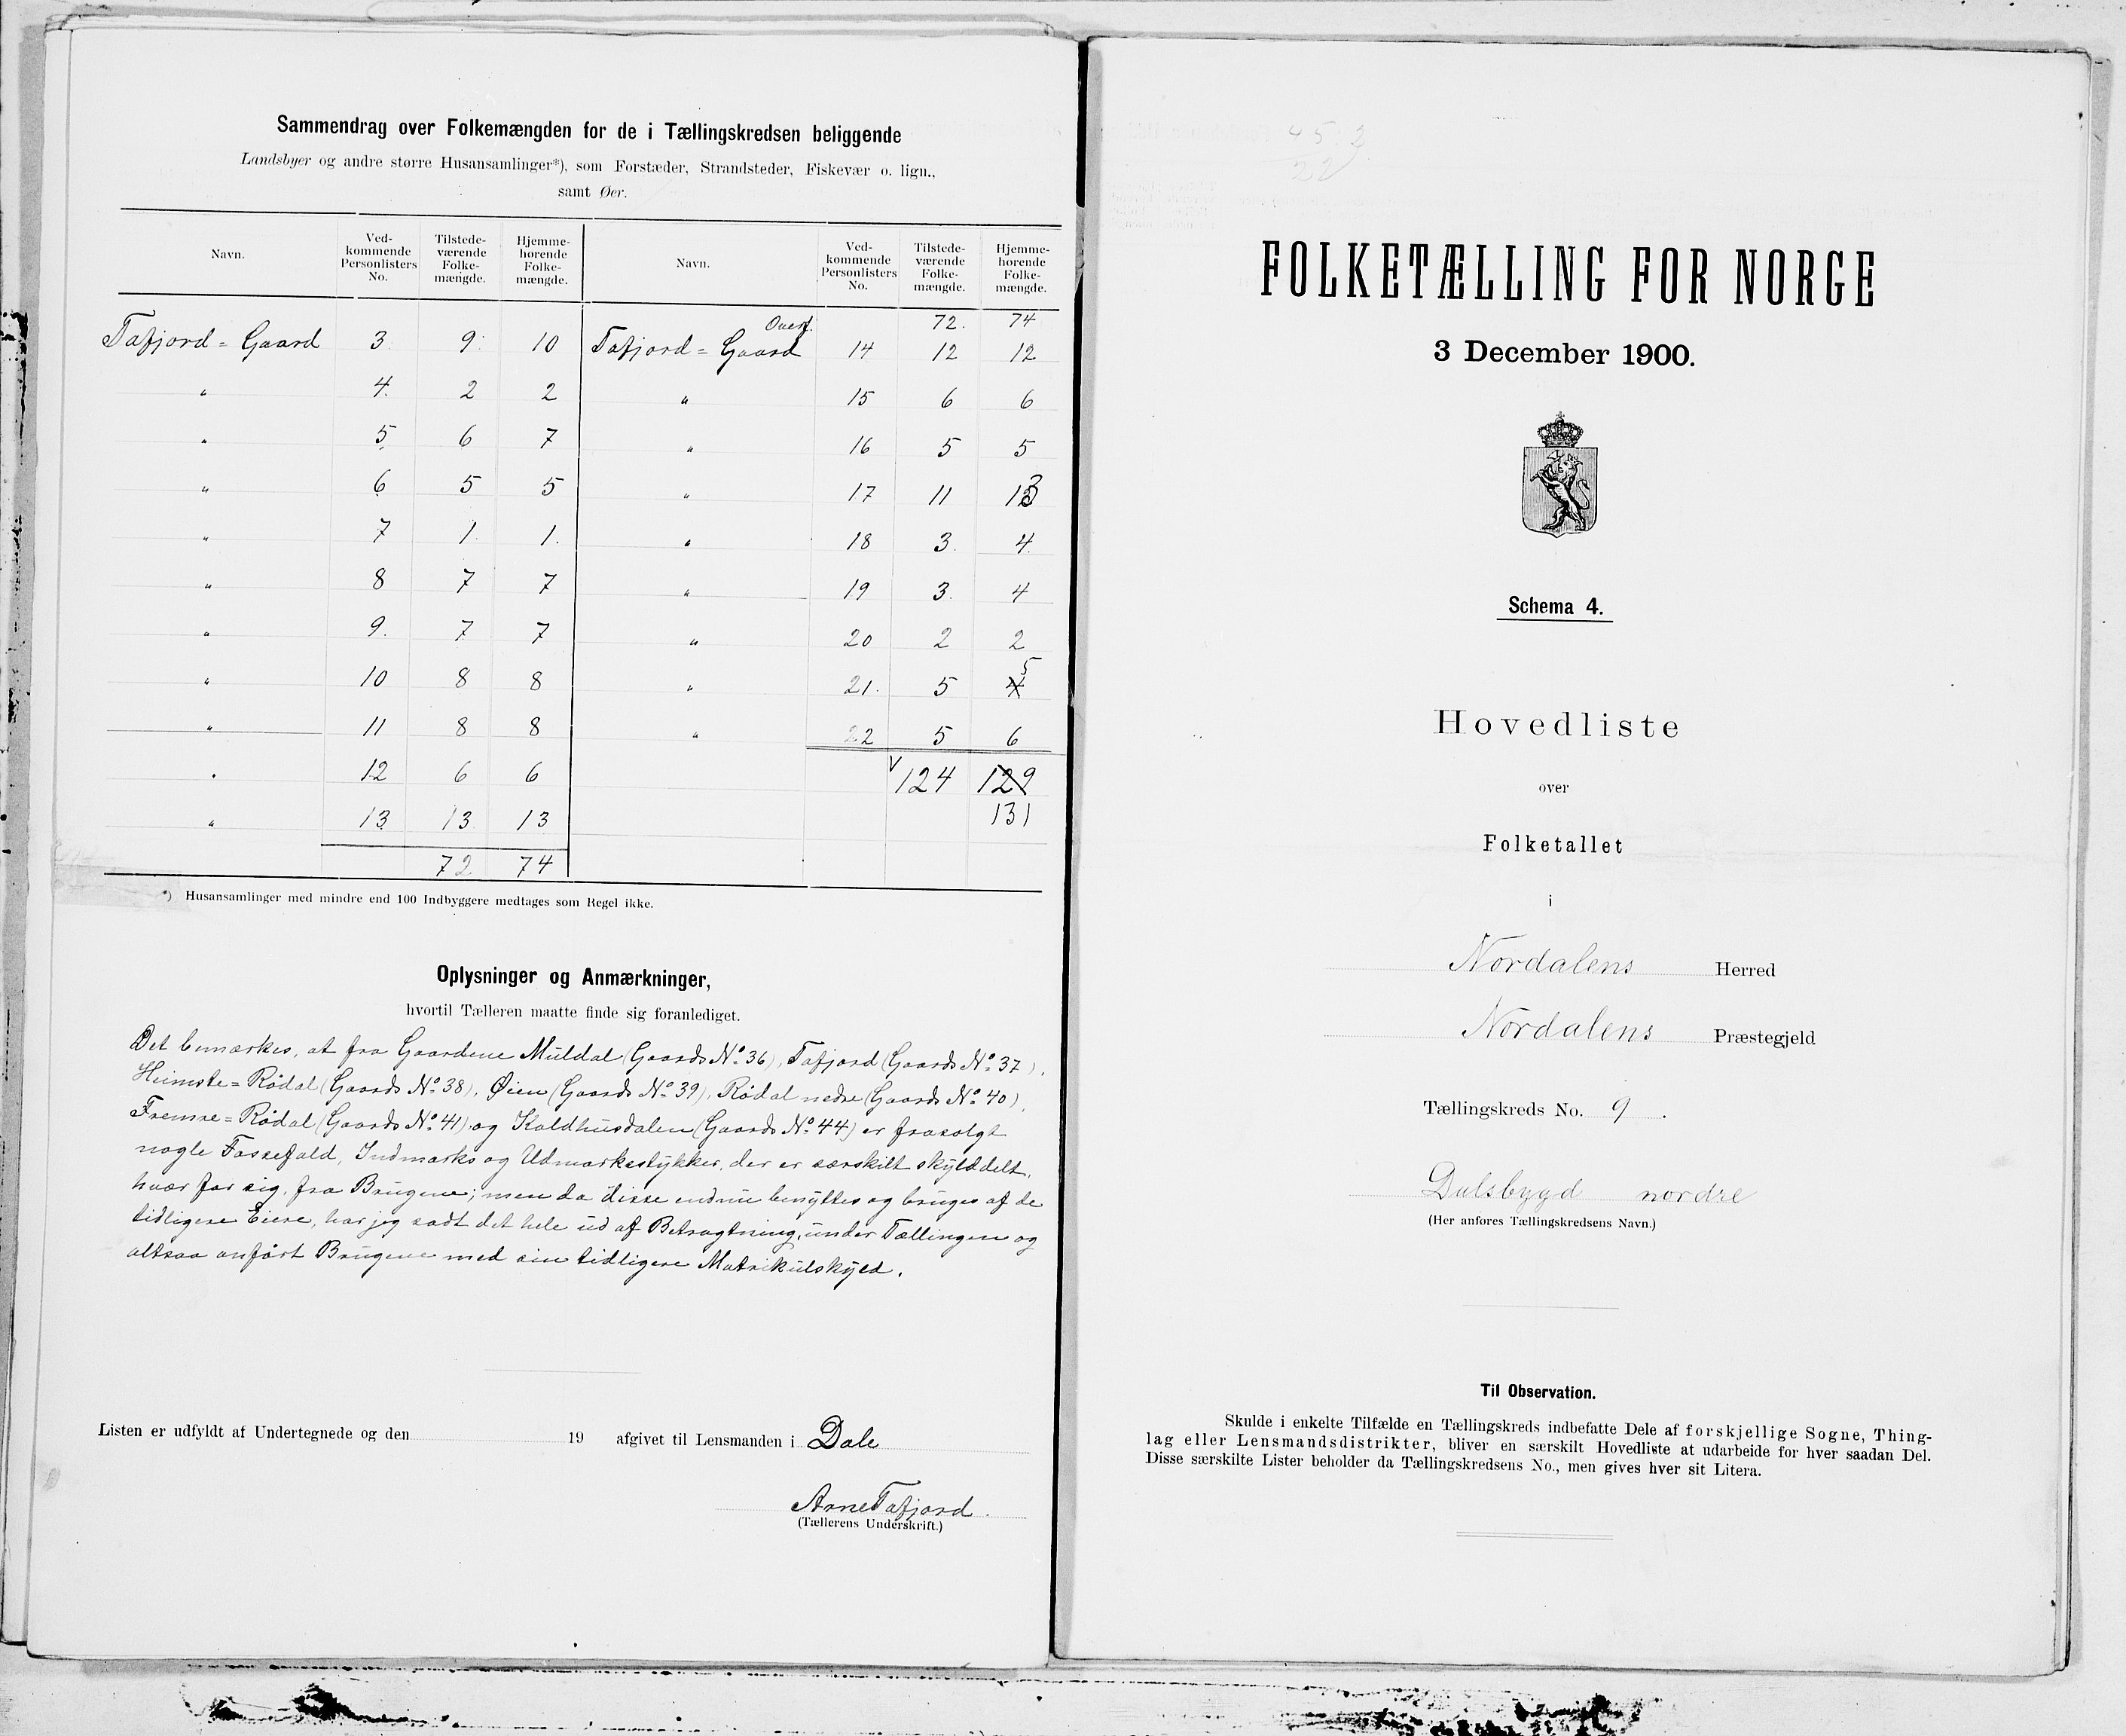 Sammendrag over Folkemængden for de i Tællingskredsen beliggende
Landsbyer og andre større Husansamlinger*), som Forstæder, Strandsteder, Fiskevær o. lign.,
samt Øer.
Navn. Ved-kommende Personlisters No. Tilstede-værende Folke-mængde. Hjemme-hørende Folke-mængde. Navn. Ved-kommende Personlisters No. Tilstede-værende Folke-mængde. Hjemme-hørende Folke-mængde.
Overf. 72. 74
Tafjord = Gaard 3 9 10 Tafjord = Gaard 14 12 12
" 4. 2 2 " 15 6 6
" 5. 6 7 " 16 5 5
" 6 5 5 " 17 11 13
" 7 1 1. " 18 3. 4
" 8 7 7 " 19 3. 4
" 9. 7 7 " 20 2 2
" 10 8 8 " 21. 5 4 5
" 11 8 8 " 22 5 6
" 12 6 6 124 129
" 13 13 13 131
72 74
*) Husansamlinger med mindre end 100 Indbyggere medtages som Regel ikke.
Oplysninger og Anmærkninger,
hvortil Tælleren maatte finde sig foranlediget.
Det bemærkes, at fra Gaardene Muldal (Gaards No. 36), Tafjord (Gaards No. 37),
Heimste = Rødal (Gaards No. 38), Øien (Gaards No. 39), Rødal nedre (Gaards No. 40),
Fremre = Rødal (Gaards No. 41) og Kaldhusdalen (Gaards No. 44) er frasolgt
nogle Fossefald, Indmarks og Udmarksstykker, der er særskilt skylddelt,
hvær for sig, fra Brugene; men da disse endnu benyttes og bruges af de
tidligere Eiere, har jeg sadt det hele ud af Betragtning, under Tællingen og
altsaa anført Brugene med sin tidligere Matrikulskyld.
Listen er udfyldt af Undertegnede og den 19 afgivet til Lensmanden i Dale
Arne Tafjord.
(Tællerens Underskrift.)
45.2
22
FOLKETÆLLING FOR NORGE
3 December 1900.
Schema 4.
Hovedliste
over
Folketallet
i
Nordalens Herred
Nordalens Præstegjeld
Tællingskreds No. 9.
Dalsbygd nordre
(Her anføres Tællingskredsens Navn.)
Til Observation.
Skulde i enkelte Tilfælde en Tællingskreds indbefatte Dele af forskjellige Sogne, Thing-
lag eller Lensmandsdistrikter, bliver en særskilt Hovedliste at udarbeide for hver saadan Del.
Disse særskilte Lister beholder da Tællingskredsens No., men gives hver sit Litera.